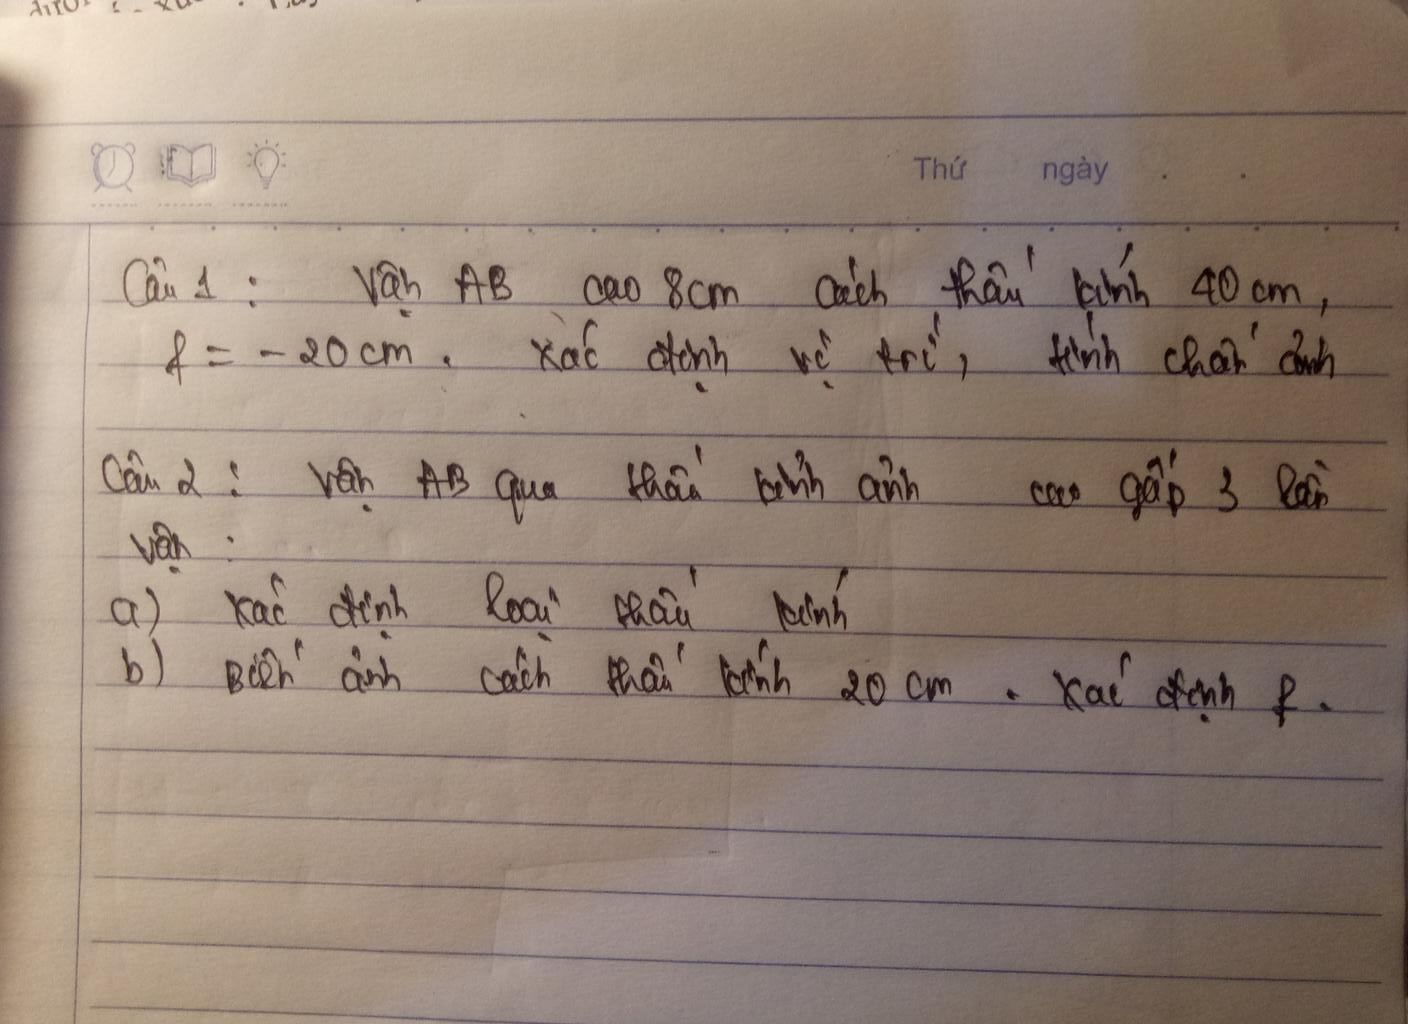 Thứ ngày . .
Câu 1 : Vật AB cao 8cm cách thấu kính 40 cm,
f = - 20 cm . Xác định vị trí, tính chất ảnh
Câu 2 : Vật AB qua thấu kính ảnh cao gấp 3 lần
vật :
a) Xác định loại thấu kính
b) Biết ảnh cách thấu kính 20 cm . Xác định f .